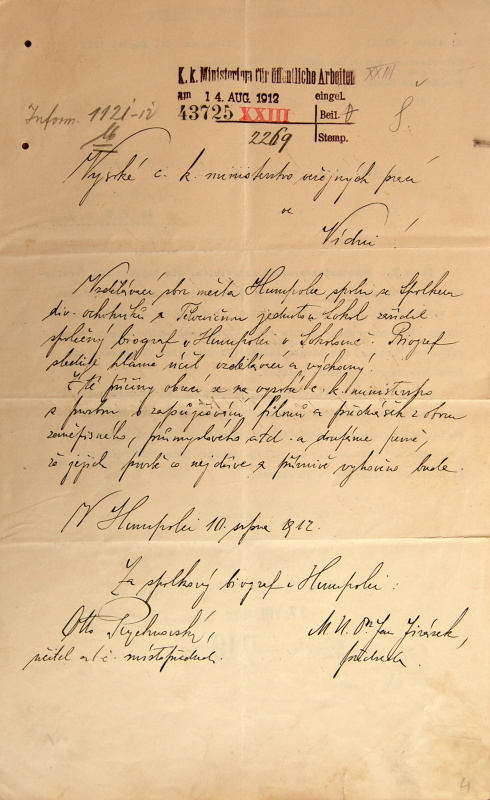 K. k. Ministerium für öffentliche Arbeiten
XXIII
am 14. AUG. 1912 eingel.
43725 XXIII Beil. 0
2269 Stemp.
Inform. 1121-
Vysoké c. k. ministerstvo veřejných prací
ve
Vídni!
Vzdělávací sbor města Humpolce spolu se Spolkem
div. ochotníků a Tělocvičnou jednotou Sokol zařídil
společný biograf v Humpolci v Sokolovně. Biograf
sleduje hlavně účel vzdělávací a výchovný.
Z té příčiny obrací se na vysoké c. k. ministerstvo
s prosbou o zapůjčování filmů a přednášek z oboru
zeměpisného, průmyslového atd. a doufáme pevně,
že jejich prosbě co nejdříve a příznivě vyhověno bude.
V Humpolci 10. srpna 1912.
Za spolkový biograf v Humpolci:
Otto
M. U. Dr. Jan Jirásek,
učitel a t. č. místopředseda.
předseda.
4